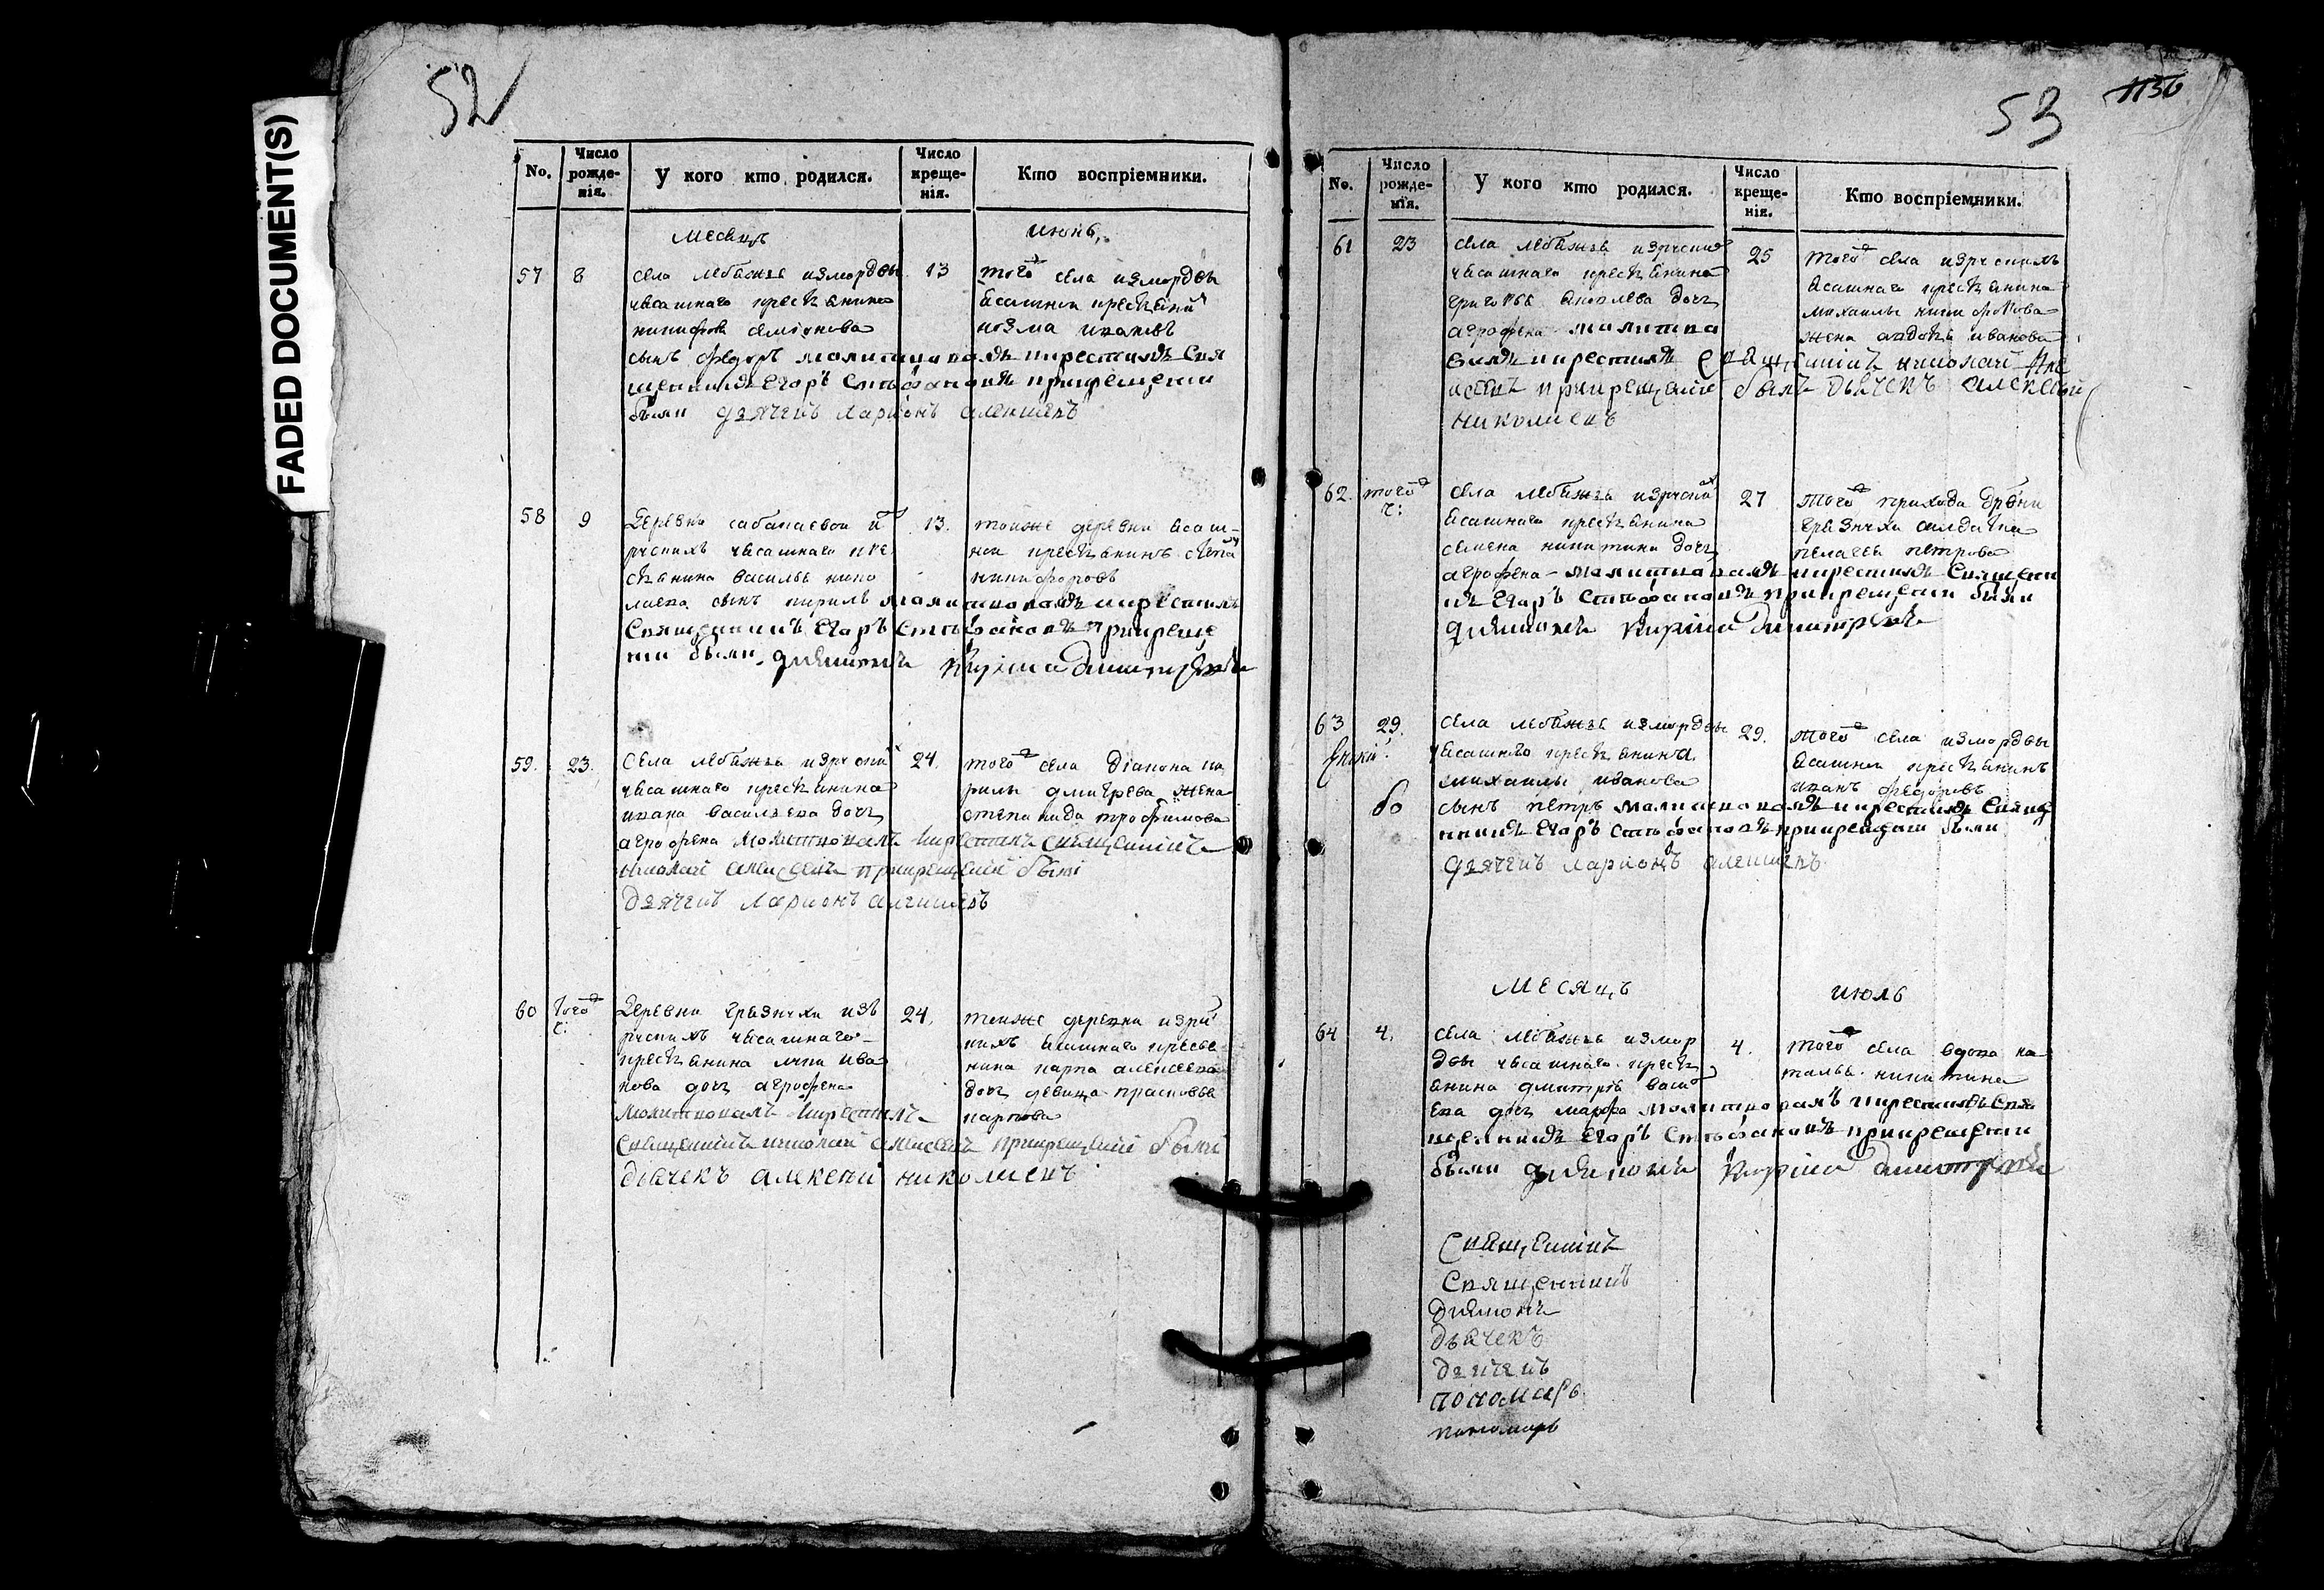 FADED DOCUMENT(S)
52
No.
Число рожде-нія.
У кого кто родился.
Число креще-нія.
Кто воспріемники.
месяцъ июнь
57 8
села лебяжья измордвы
ясашнаго крестьянина
никифора семіонова
сынъ федоръ молитвовалъ икрестилъ Свя
щенникъ Егоръ Стефановъ прикрещении
были дьячекъ Ларионъ алексеевъ
13
того села измордвы
ясашной крестьянинъ
козма ивановъ
58 9
Деревни
рускихъ ясашнаго кре
стьянина василья нико
лаева сынъ кирилъ молитвовалъ икрестилъ
Священникъ Егоръ Стефановъ прикреще
нии были дияконъ Кирила Димитріевъ
13.
тойже деревни ясаш-
ной крестьянинъ степа
никифоровъ
59. 23.
Села лебяжья изруских
ясашнаго крестьянина
ивана васильева дочь
агрофена молитвовалъ икрестилъ священникъ
николай алексеевъ прикрещении были
дьячекъ Ларионъ алексеевъ
24.
того села діакона ки
рилы дмитрева жена
степанида трофимова
60 того ч:
Деревни грязнухи изъ
рускихъ ясашнаго
крестьянина луки ива
нова дочь агрофена
молитвовалъ икрестилъ
священникъ николай алексеевъ прикрещении были
дьячекъ алексей николаевъ
24.
тойже деревни изрус
кихъ ясашнаго кресья
нина карпа алексеева
дочь девица прасковья
карпова
53 1136
No.
Число рожде-нія.
У кого кто родился.
Число креще-нія.
Кто воспріемники.
61 23
села лебяжья изруских
ясашнаго крестьянина
григорья яковлева дочь
агрофена молитво
валъ икрестилъ священникъ николай Але
ксеевъ прикрещении былъ дьячекъ алексей
николаевъ
25
того села изрускихъ
ясашнаго крестьянина
михаилы никифорова
жена авдотья иванова
62. того ч:
села лебяжья изруских
ясашнаго крестьянина
семена никитина дочь
агрофена молитвовалъ икрестилъ Священни
къ Егоръ Стефановъ прикрещении были
дияконъ Кирила Димитріевъ
27
того прихода дрвни
грязнухи салдатка
пелагея петрова
63 29.
села лебяжья измордвы
ясашнаго крестьянина
михаилы иванова
бо сынъ петръ молитвовалъ икрестилъ Свяще
нникъ Егоръ Стефановъ прикрещении были
дьячекъ Ларионъ алексеевъ
29.
того села измордвы
ясашной крестьянинъ
иванъ федоровъ
месяцъ июль
64 4.
села лебяжья измор
двы ясашнаго кресть
янина дмитрія васил
ева дочь марфа молитвовалъ икрестилъ Свя
щенникъ Егоръ Стефановъ прикрещении
были дияконъ Кирила Димитріевъ
4.
того села вдова на
талья никитина
Священникъ
Священникъ
Дияконъ
Дьячекъ
Дьячекъ
пономарь
пономарь